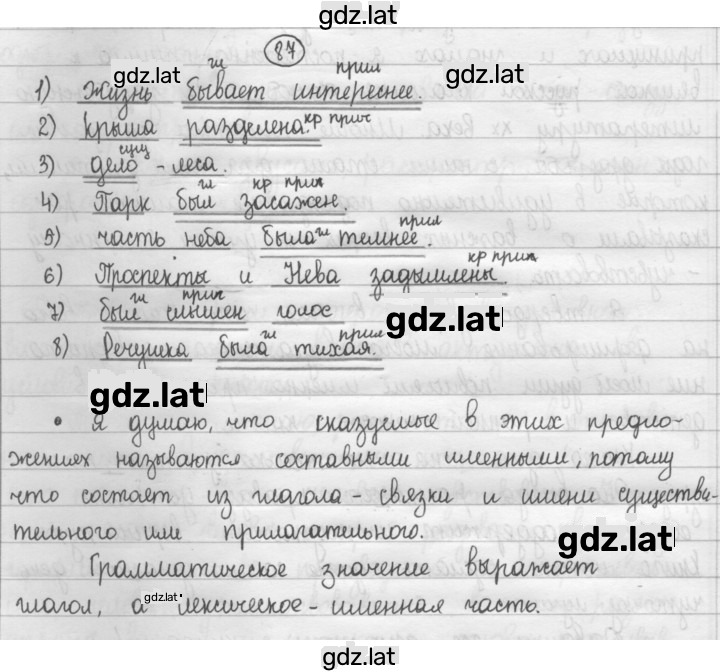 gdz.lat
87
gdz.lat
gdz.lat
гл прил
1) Жизнь бывает интереснее
2) Крыша разделена. кр прич
сущ
3) дело - леса.
гл кр прич
4) Парк был засажен.
гл прил
5) часть неба была темнее.
кр прич
6) Проспекты и Нева задымлены.
гл прил
7) был слышен голос
gdz.lat
гл прил
8) Речушка была тихая.
gdz.lat
• Я думаю, что сказуемые в этих предло-
жениях называются составными именными, потому
что состоят из глагола-связки и имени существи-
тельного или прилагательного.
gdz.lat
Грамматическое значение выражает
глагол, а лексическое - именная часть.
gdz.lat
gdz.lat